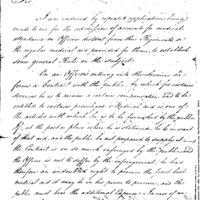 Sir
I am induced by repeated applications being
made to me for the admission of accounts for medical
attendance on Officers distant from their Regiments or
the regular medical aid provided for them, to establish
some general Rule on the subject.
On an Officers entering into the Service he
forms a Contract with the public, by which for certain
Services he is to receive a certain compensation, and to be
entitled to certain privileges. Medical aid is one of
the articles with which he is to be furnished by the public
If at the post or place where he is stationed,
of that aid, are the public not prepared to supply it
the Contract is on so much infringed by the public, and
the Officer is not to suffer by the infringement; he has
therefore an undoubted right to procure the best
medical aid it may be in his power to procure, and the
public must bear the additional expence.